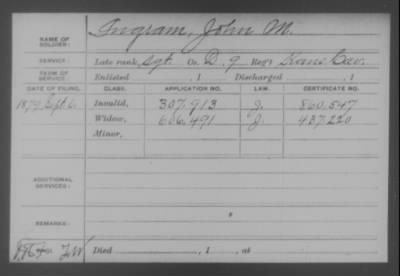 NAME OF SOLDIER: Ingram, John M.
SERVICE: Late rank, Sgt. Co. D. 9 Reg't Kans Cav.
TERM OF SERVICE: Enlisted , 1 Discharged , 1
DATE OF FILING. CLASS. APPLICATION NO. LAW. CERTIFICATE NO.
1879, Sept. 6. Invalid, 307,913 J. 860,547
Widow, 606,491 J. 437,220
Minor,
ADDITIONAL SERVICES:
REMARKS:
Died , 1 , at